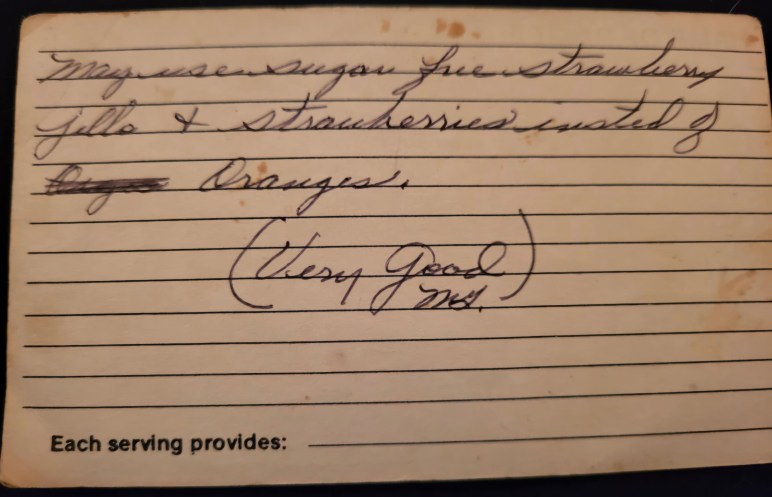 May use sugar free strawberry
jello & strawberries insted of
Oranges.
(Very Good)
Each serving provides: